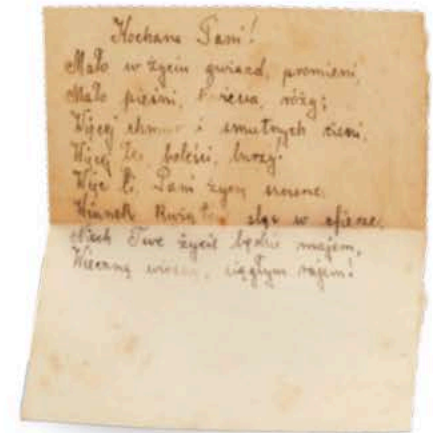 Kochana Pani!
Mało w życiu gwiazd, promieni,
Mało pieśni, róży;
Więcej chmur i smutnych cieni,
Więcej łez, boleści, burzy!
Więc Ci, Pani życzę
Wianek kwiatów w ofierze,
Niech Twe życie będzie majem,
Wieczną wiosną, ciągłym rajem!